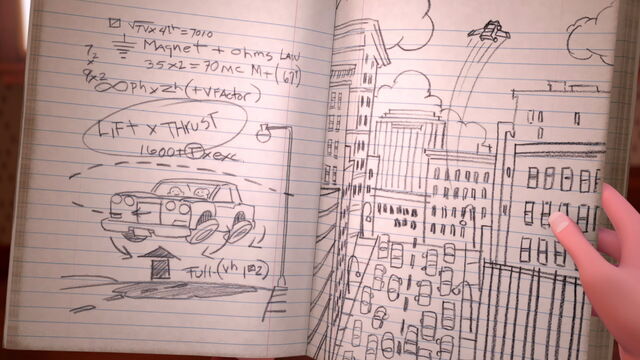 √TVx4Lt=7010
Magnet + ohms LAW
35x2=70mc M+(67°)
7/2
x
9x2
∞phxzh(+VFActor)
LiFt x THRUST
1600+
Full-(vh